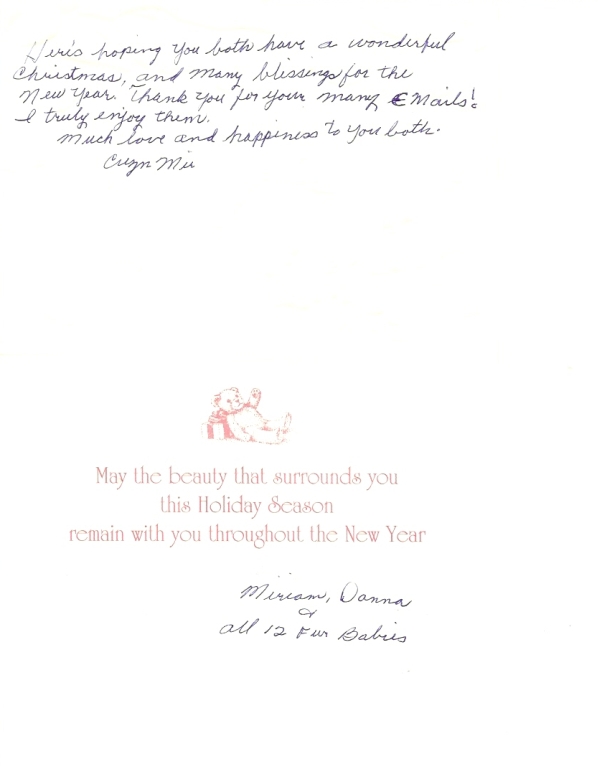 Here's hoping you both have a wonderful
Christmas, and many blessings for the
New Year. Thank you for your many EMails!
I truly enjoy them.
Much love and happiness to you both.
Cuzn Mii
May the beauty that surrounds you
this Holiday Season
remain with you throughout the New Year
Miriam, Donna
&
all 12 Fur Babies